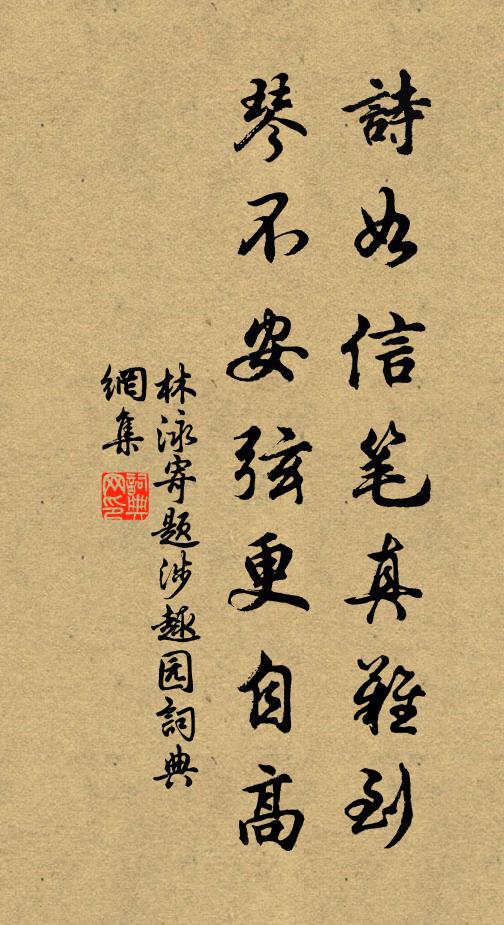 詩如信笔真難到
琴不安弦更自高
林泳寄題涉趣园詞典
網集
詞典网印